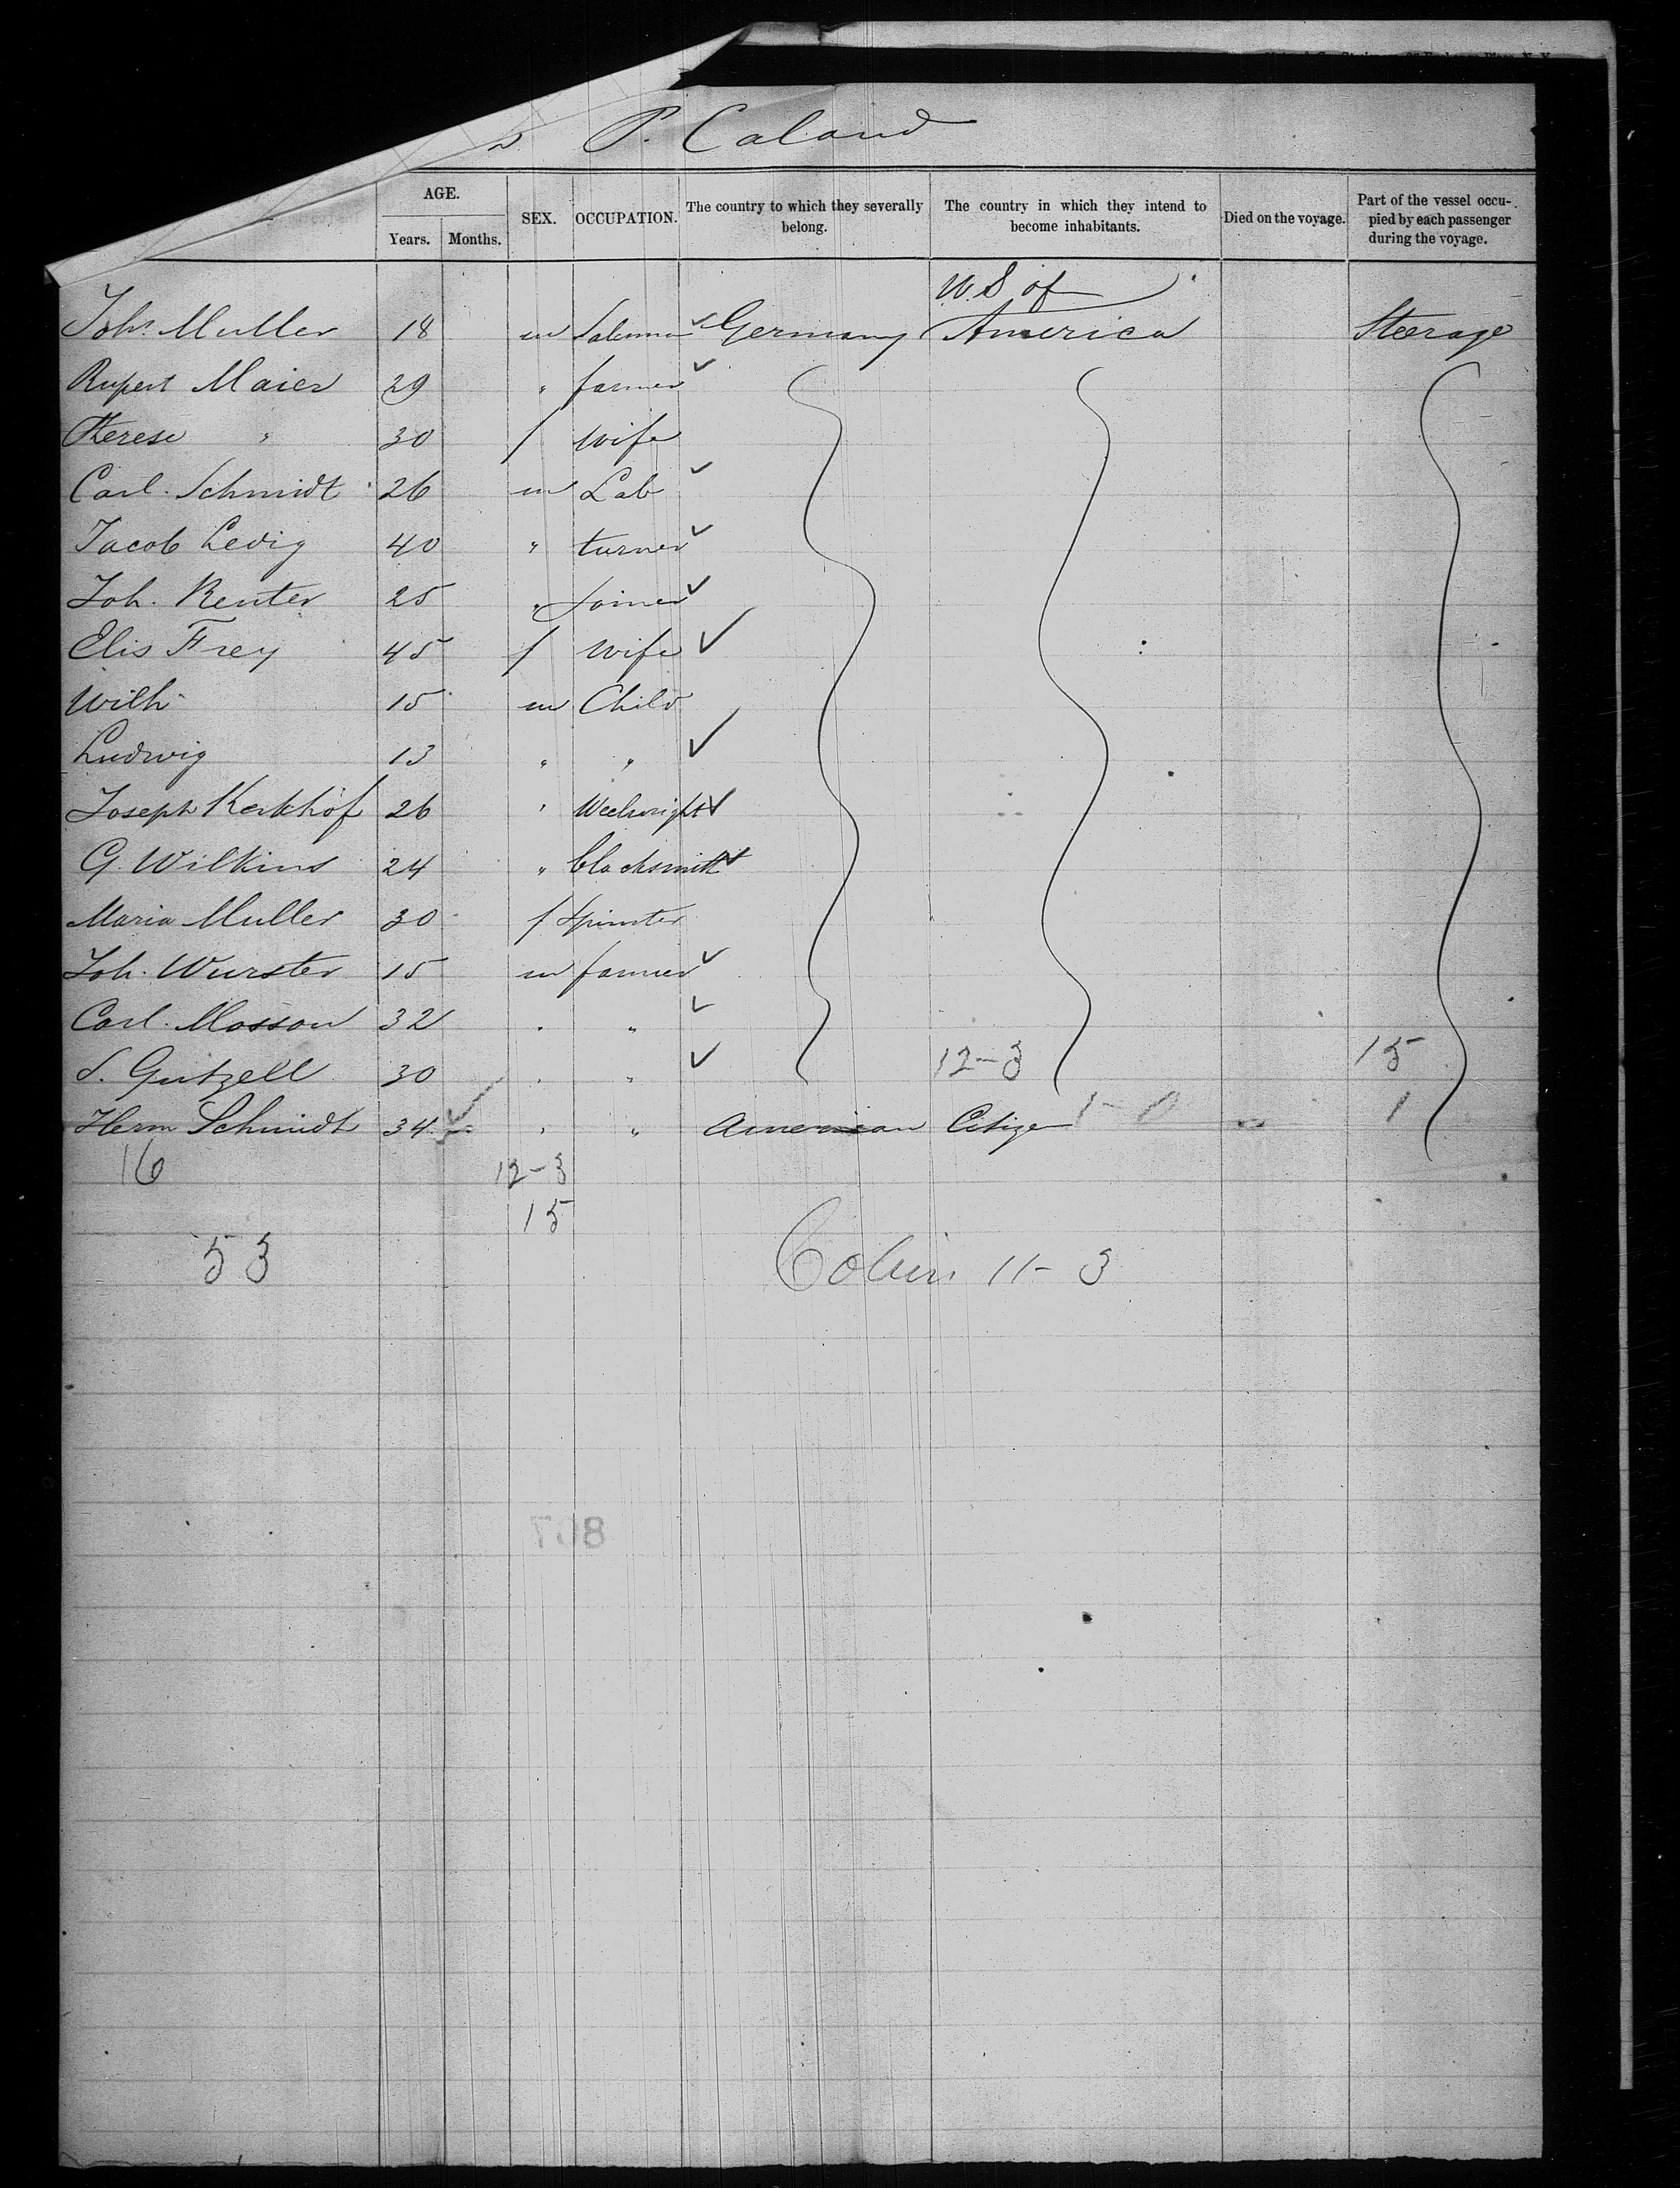 P. Caland
AGE.
Years. Months. SEX. OCCUPATION. The country to which they severally belong. The country in which they intend to become inhabitants. Died on the voyage. Part of the vessel occu-pied by each passenger during the voyage.
U.S of
Joh. Muller 18 m Salesman Germany America Steerage
Rupert Maier 29 " farmer
Therese " 30 f wife
Carl. Schmidt 26 m Lab
Jacob Ledig 40 " turner
Joh. Renter 25 " Joiner
Elis Frey 45 f wife
Wilh 15 m Child
Ludwig 13 " "
Joseph Kerkhof 26 " Weelwright
G. Wilkins 24 " blacksmith
Maria Muller 30 f Spinster
Joh. Wurster 15 m farmer
Carl. Mosson 32 " "
S. Gutzell 30 " " 12-3 15
Herm Schmidt 34 " " American Citizen 1-0 1
16 12-3
15
53 11-3
807